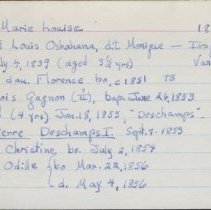 Marie Louise 18
Louis Oshahana, dit Monique — Iro
ly 4, 1839 (aged 38 yrs) Va
dau. Florence bo. c1851 TS
ois Gagnon (II), bap. June 26, 1853
(4 yrs) Jan. 18, 1855, "Deschamps"
erre Deschamps I Sept. 7, 1853
Christine bo. July 2, 1854
Odille bo Mar. 22, 1856
d. May 4, 1856